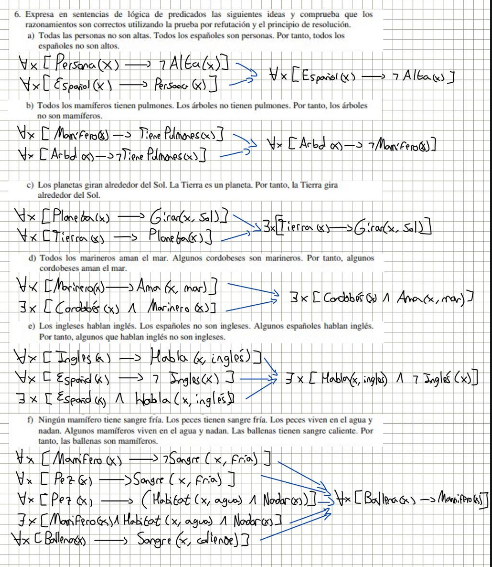 6. Expresa en sentencias de lógica de predicados las siguientes ideas y comprueba que los
razonamientos son correctos utilizando la prueba por refutación y el principio de resolución.
a) Todas las personas no son altas. Todos los españoles son personas. Por tanto, todos los
españoles no son altos.
∀x [Persona(x) → ¬Alta(x)]
∀x [Español(x) → Persona(x)]
∀x [Español(x) → ¬Alta(x)]
b) Todos los mamíferos tienen pulmones. Los árboles no tienen pulmones. Por tanto, los árboles
no son mamíferos.
∀x [Mamífero(x) → Tiene Pulmones(x)]
∀x [Arbol(x) → ¬Tiene Pulmones(x)]
∀x [Arbol(x) → ¬Mamífero(x)]
c) Los planetas giran alrededor del Sol. La Tierra es un planeta. Por tanto, la Tierra gira
alrededor del Sol.
∀x [Planeta(x) → Girar(x, Sol)]
∀x [Tierra(x) → Planeta(x)]
∃x [Tierra(x) → Girar(x, Sol)]
d) Todos los marineros aman el mar. Algunos cordobeses son marineros. Por tanto, algunos
cordobeses aman el mar.
∀x [Marinero(x) → Ama(x, mar)]
∃x [Cordobés(x) ∧ Marinero(x)]
∃x [Cordobés(x) ∧ Ama(x, mar)]
e) Los ingleses hablan inglés. Los españoles no son ingleses. Algunos españoles hablan inglés.
Por tanto, algunos que hablan inglés no son ingleses.
∀x [Ingles(x) → Habla(x, inglés)]
∀x [Español(x) → ¬Inglés(x)]
∃x [Español(x) ∧ Habla(x, inglés)]
∃x [Habla(x, inglés) ∧ ¬Inglés(x)]
f) Ningún mamífero tiene sangre fría. Los peces tienen sangre fría. Los peces viven en el agua y
nadan. Algunos mamíferos viven en el agua y nadan. Las ballenas tienen sangre caliente. Por
tanto, las ballenas son mamíferos.
∀x [Mamífero(x) → ¬Sangre(x, Fría)]
∀x [Pez(x) → Sangre(x, Fría)]
∀x [Pez(x) → (Habitat(x, agua) ∧ Nadar(x))]
∃x [Mamífero(x) ∧ Habitat(x, agua) ∧ Nadar(x)]
∀x [Ballena(x) → Sangre(x, caliente)]
∀x [Ballena(x) → Mamífero(x)]